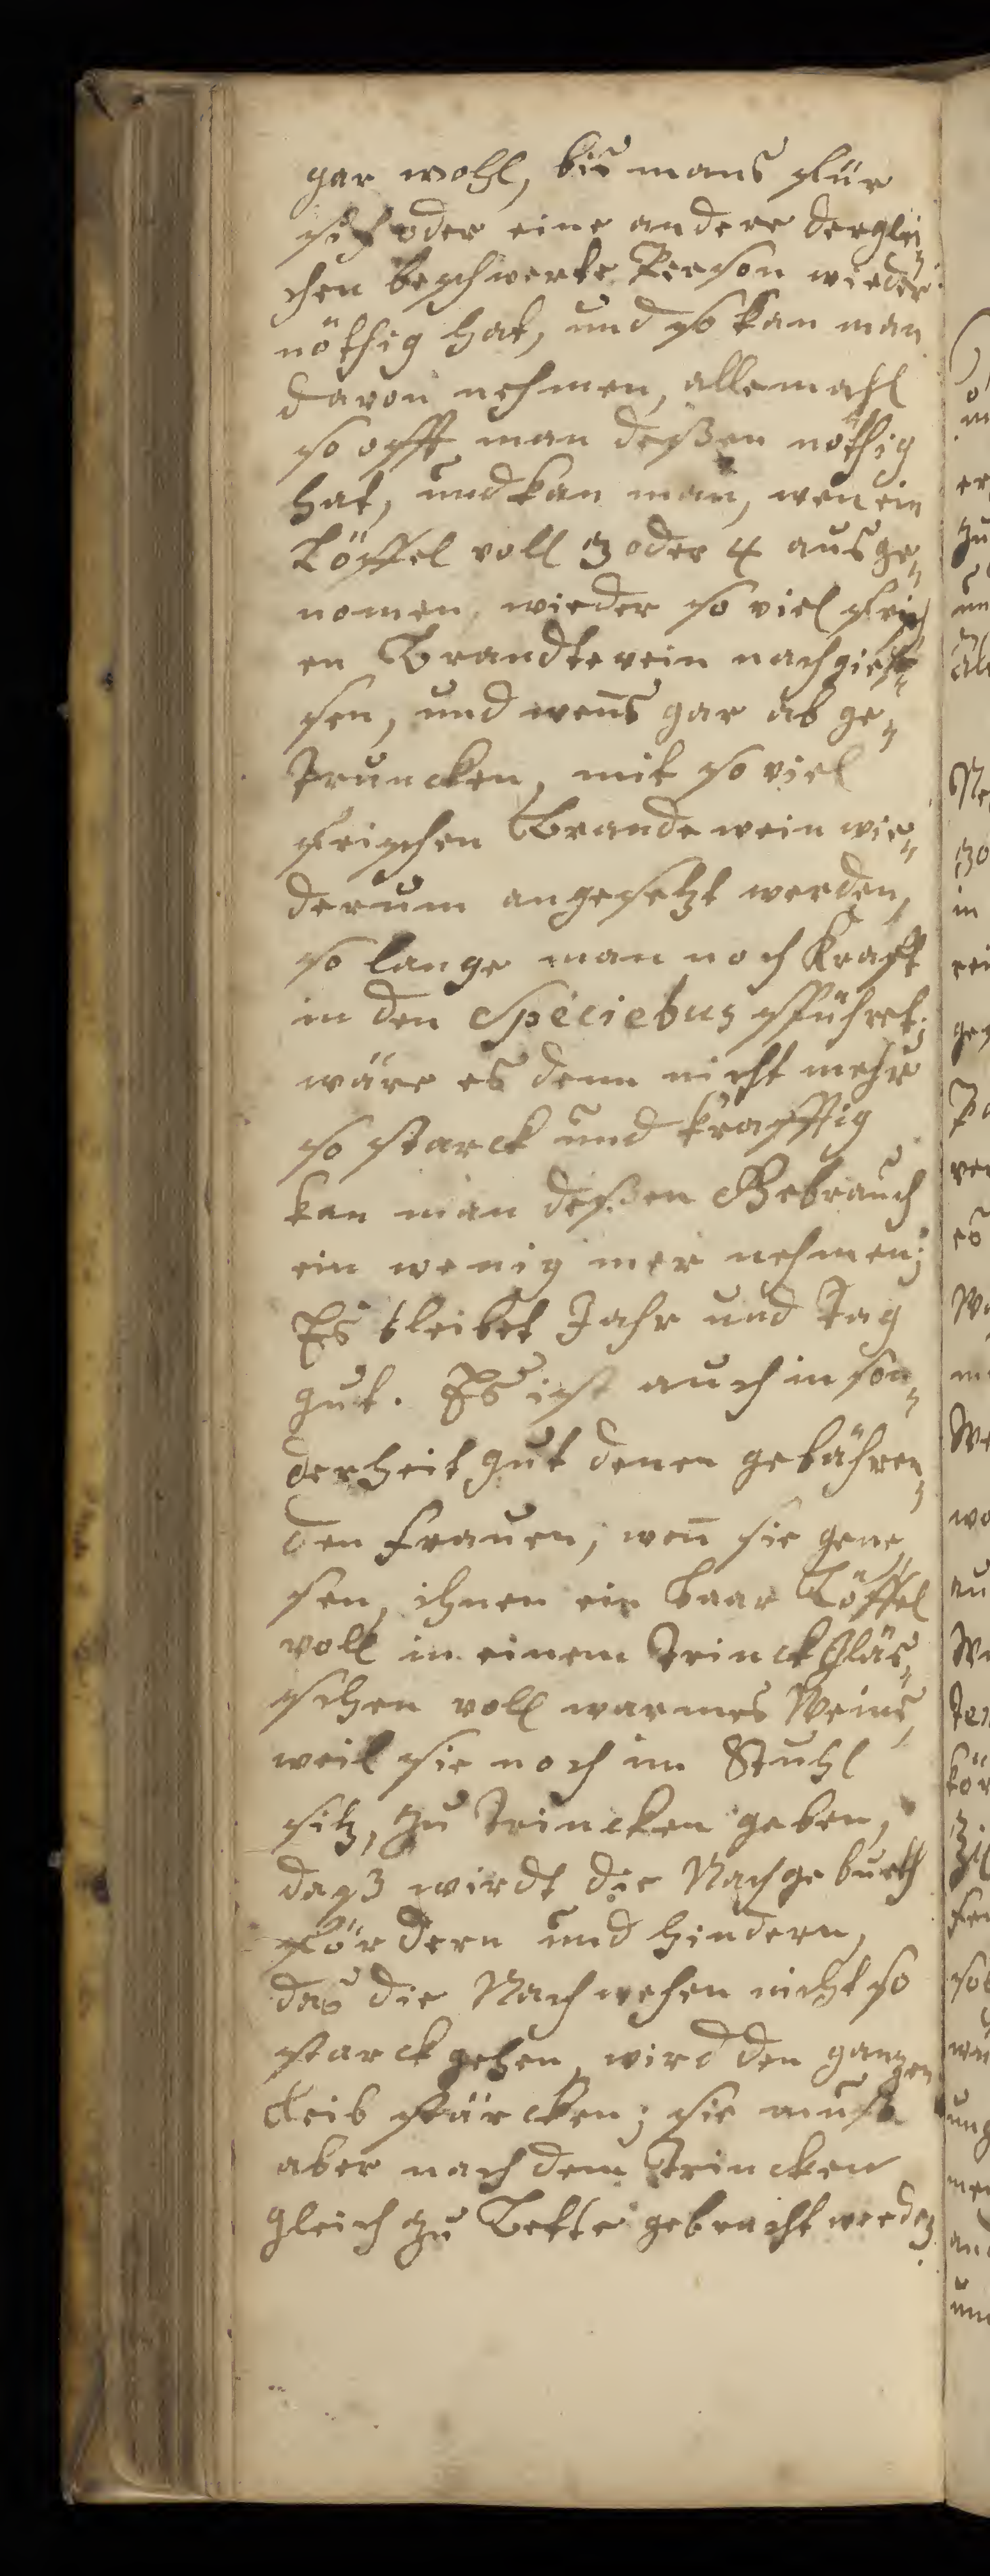 gar wohl, bis mans für
sich oder eine andere derglei„
chen beschwerte Person wieder
nöthig hat, und so kan man
davon nehmen, allemahl
so offt man deßen nöthig
hat, und kan man, wen ein
Löffel voll 3 oder 4 ausge„
nomen, wieder so viel frisch
en Brandtewein nachgieß„
sen, und weñs gar ab ge„
truncken, mit so viel
frischen Brandewein wie„
derum angesetzt werden,
so lange man noch Krafft
in den Speciebus spühret;
wäre es denn nicht mehr
so starck und kräfftig
kan man deßen Gebrauch
ein wenig mer nehmen;
Es bleibet Jahr und Tag
gut. Es ist auch in son„
derheit gut denen gebähren„
den Frauen, weñ sie gene„
sen, ihnen ein baar Löffel
voll in einem trinck Gläs„
schen voll warmes Weins,
weil sie noch im Stuhl
sitz, zu trincken geben,
dasz wirdt die Nachgeburth
fördern und hindern,
das die Nachwehen nicht so
starck gehen, wird den ganzen
Leib stärcken; sie muß
aber nach dem trincken
gleich zu Bette gebracht werden